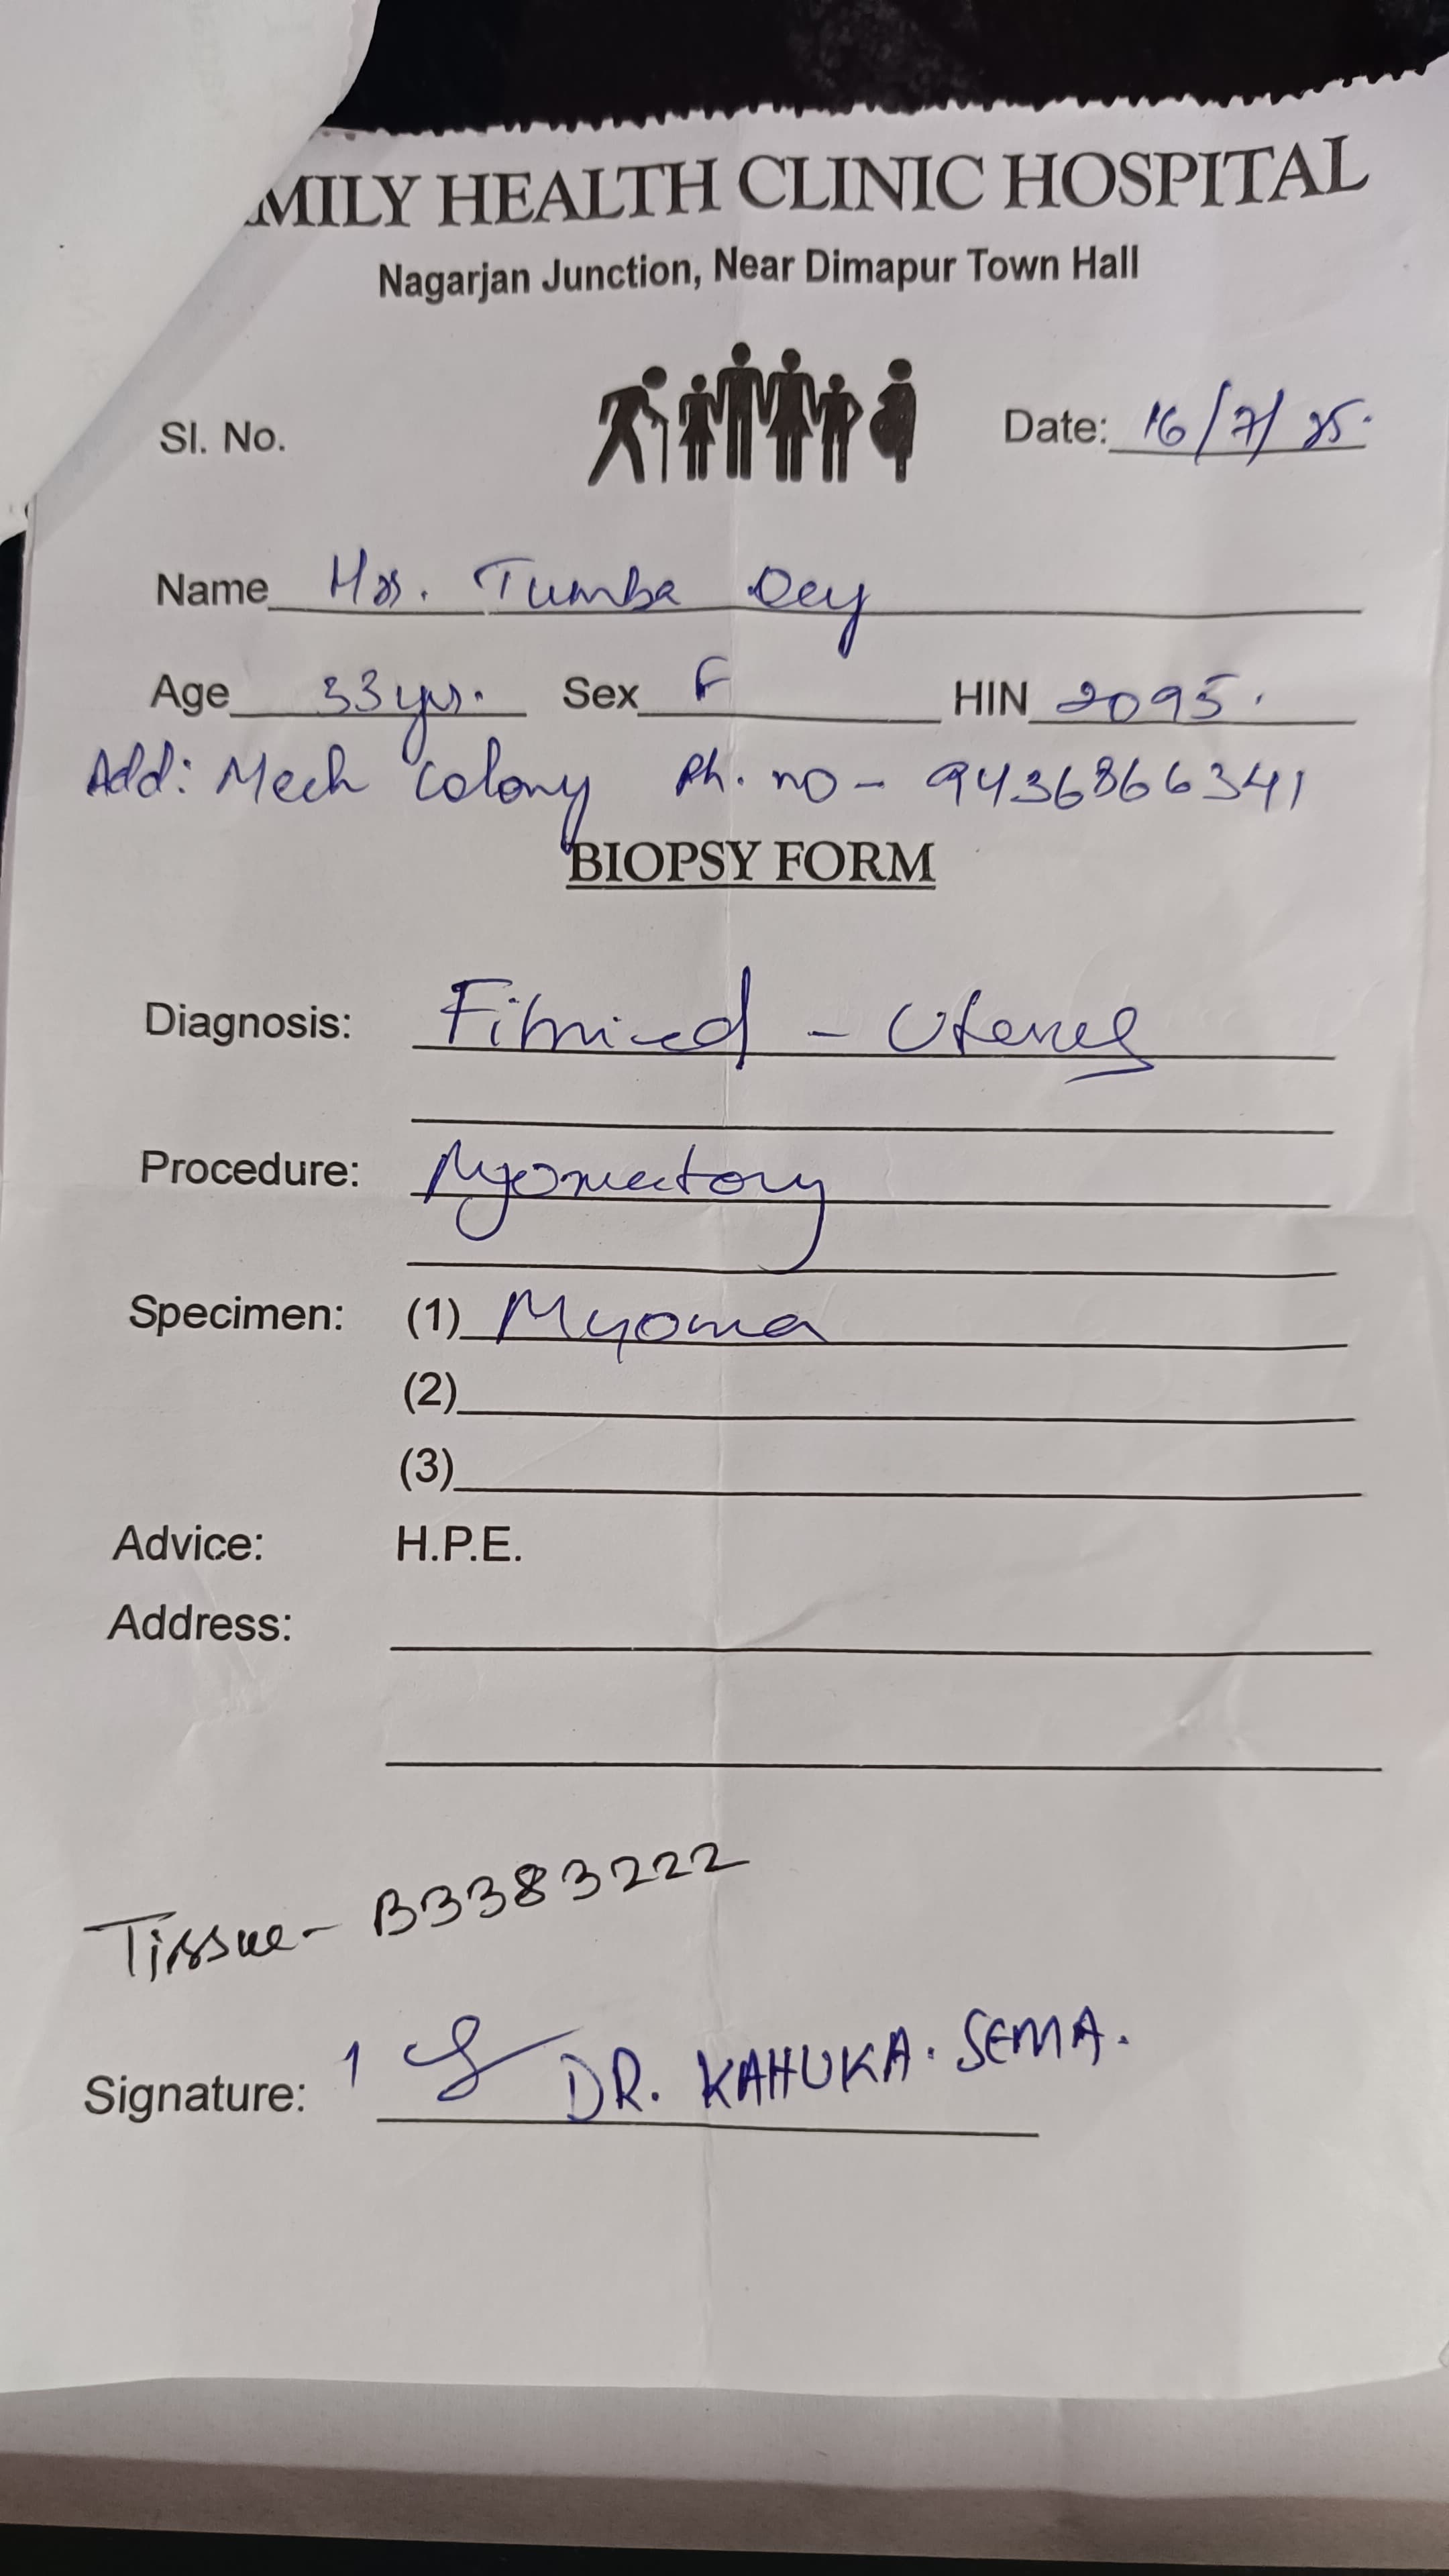 MILY HEALTH CLINIC HOSPITAL
Nagarjan Junction, Near Dimapur Town Hall
Sl. No. Date: 16/7/25.
Name Mrs. Tumba Dey
Age 33 yrs. Sex F HIN 2095.
Add: Mech Colony Ph. no - 9436866341
BIOPSY FORM
Diagnosis: Fibroid - Uterus
Procedure: Myomectomy
Specimen: (1) Myoma
(2)
(3)
Advice: H.P.E.
Address:
Tissue - B3383222
Signature: DR. KAHUKA. SEMA.